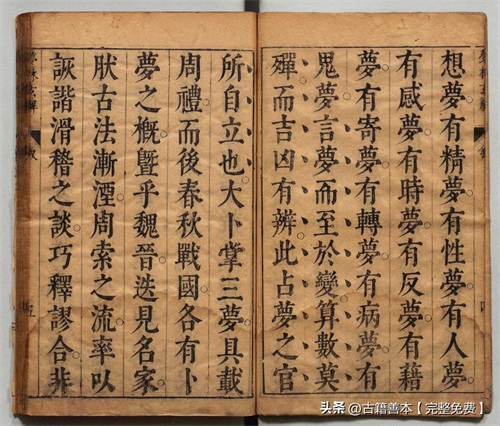 想夢有精夢有性夢有人夢
有感夢有時夢有反夢有籍
夢有寄夢有轉夢有病夢有
鬼夢言夢而至於變算數莫
殫而吉凶有辨此占夢之官
所自立也大卜掌三夢具載
周禮而後春秋戰國各有卜
夢之概曁乎魏晉迭見名家
肰古法漸湮周索之流率以
詼諧滑稽之談巧釋謬合非
頭条 @古籍善本【完整免费】